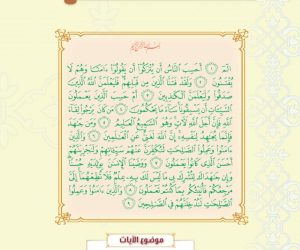 بِسْمِ ٱللَّهِ ٱلرَّحْمَٰنِ ٱلرَّحِيمِ
الٓمٓ ١ أَحَسِبَ ٱلنَّاسُ أَن يُتْرَكُوٓا۟ أَن يَقُولُوٓا۟ ءَامَنَّا وَهُمْ لَا
يُفْتَنُونَ ٢ وَلَقَدْ فَتَنَّا ٱلَّذِينَ مِن قَبْلِهِمْ فَلَيَعْلَمَنَّ ٱللَّهُ ٱلَّذِينَ
صَدَقُوا۟ وَلَيَعْلَمَنَّ ٱلْكَٰذِبِينَ ٣ أَمْ حَسِبَ ٱلَّذِينَ يَعْمَلُونَ
ٱلسَّيِّـَٔاتِ أَن يَسْبِقُونَا سَآءَ مَا يَحْكُمُونَ ٤ مَن كَانَ يَرْجُوا۟ لِقَآءَ
ٱللَّهِ فَإِنَّ أَجَلَ ٱللَّهِ لَءَاتٍ وَهُوَ ٱلسَّمِيعُ ٱلْعَلِيمُ ٥ وَمَن جَٰهَدَ
فَإِنَّمَا يُجَٰهِدُ لِنَفْسِهِۦٓ إِنَّ ٱللَّهَ لَغَنِيٌّ عَنِ ٱلْعَٰلَمِينَ ٦ وَٱلَّذِينَ
ءَامَنُوا۟ وَعَمِلُوا۟ ٱلصَّٰلِحَٰتِ لَنُكَفِّرَنَّ عَنْهُمْ سَيِّـَٔاتِهِمْ وَلَنَجْزِيَنَّهُمْ
أَحْسَنَ ٱلَّذِى كَانُوا۟ يَعْمَلُونَ ٧ وَوَصَّيْنَا ٱلْإِنسَٰنَ بِوَٰلِدَيْهِ حُسْنًا
وَإِن جَٰهَدَاكَ لِتُشْرِكَ بِى مَا لَيْسَ لَكَ بِهِۦ عِلْمٌ فَلَا تُطِعْهُمَآ إِلَىَّ
مَرْجِعُكُمْ فَأُنَبِّئُكُم بِمَا كُنتُمْ تَعْمَلُونَ ٨ وَٱلَّذِينَ ءَامَنُوا۟ وَعَمِلُوا۟
ٱلصَّٰلِحَٰتِ لَنُدْخِلَنَّهُمْ فِى ٱلصَّٰلِحِينَ ٩
موضوع الآيات